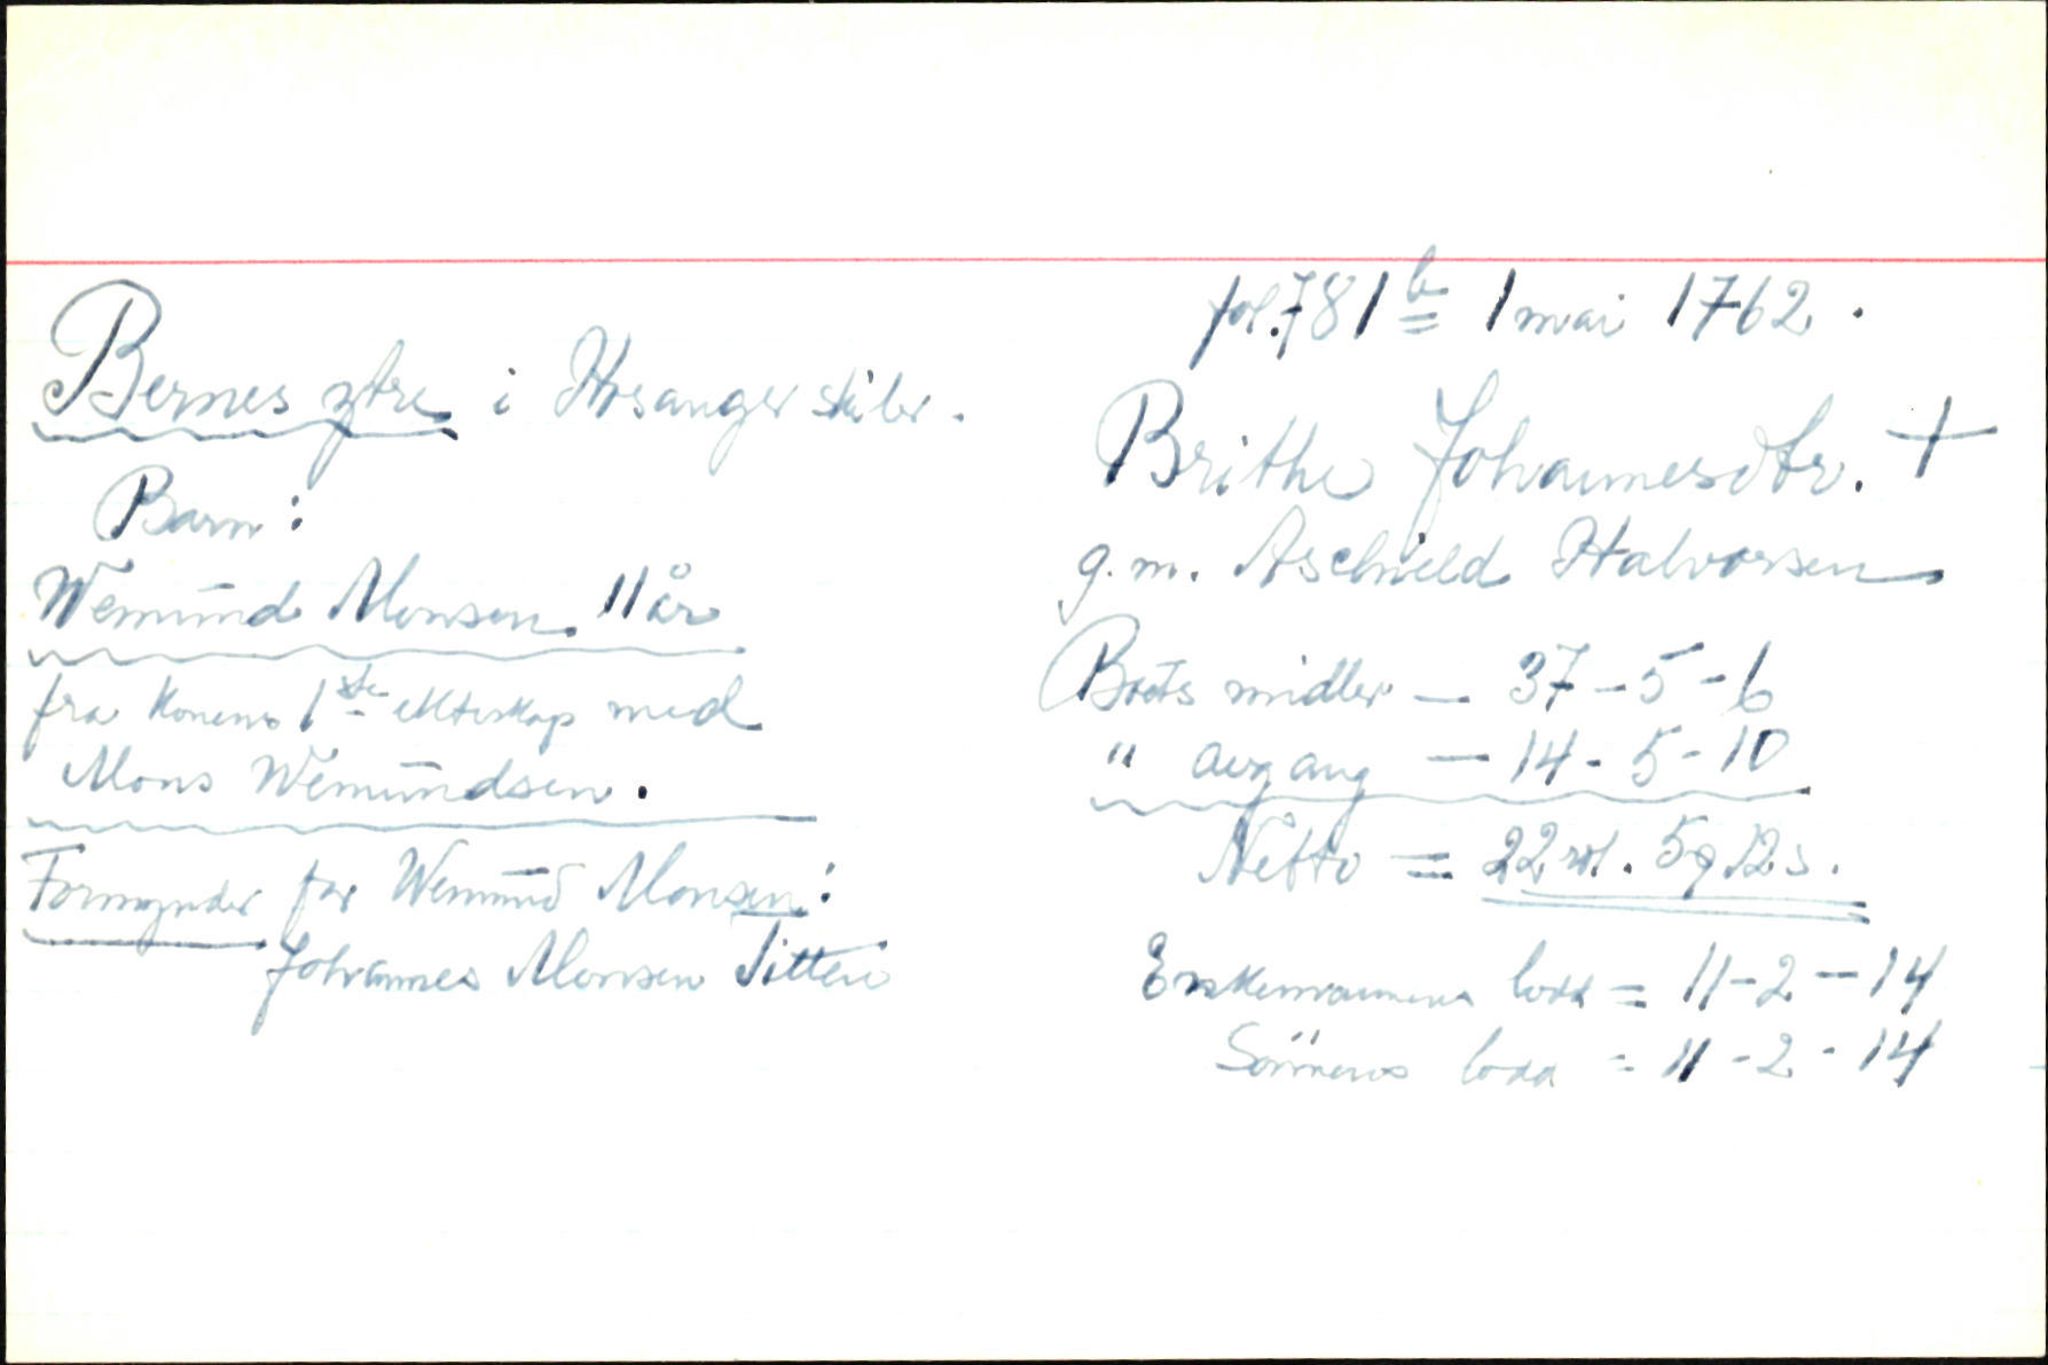 fol. 781 b 1 mai 1762.
Bernes ytre i Hosanger skibr.
Brithe Johannesdtr. +
g. m. Aschield Halvorsen
Barn:
Wemund Monsen. 11 år
fra konens 1ste ekteskap med
Mons Wemundsen.
Formynder for Wemund Monsen:
Johannes Monsen Titten
Boets midler — 37 - 5 - 6
" avgang — 14 - 5 - 10
Netto = 22 rd. 5q 12 s.
Enkemannens lodd = 11 - 2 - 14
Sönnens lodd = 11 - 2 - 14